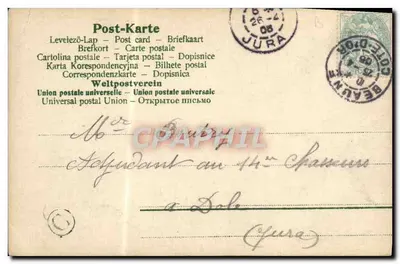 Post-Karte
Levelező-Lap — Post card — Briefkaart
Brefkort — Carte postale
Cartolina postale — Tarjeta postal — Dopisnice
Karta Korespondencyjna — Bilhete postal
Correspondenzkarte — Dopisnica
Weltpostverein
Union postale universelle — Union postale universelle
Universal postal Union — Открытое письмо
JURA
BEAUNE
COTE-D'OR
Adjudant au 14e Chasseurs
a Dole
(Jura)